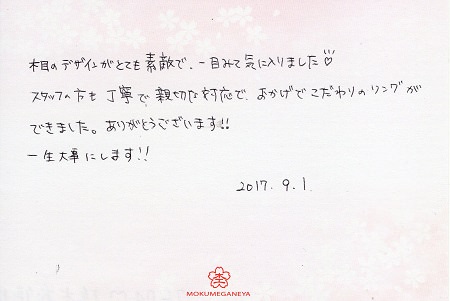 木目のデザインがとても素敵で、一目みて気に入りました♡
スタッフの方も丁寧で、親切な対応で、おかげでこだわりのリングが
できました。ありがとうございます!!
一生大事にします!!
2017. 9. 1
MOKUMEGANEYA